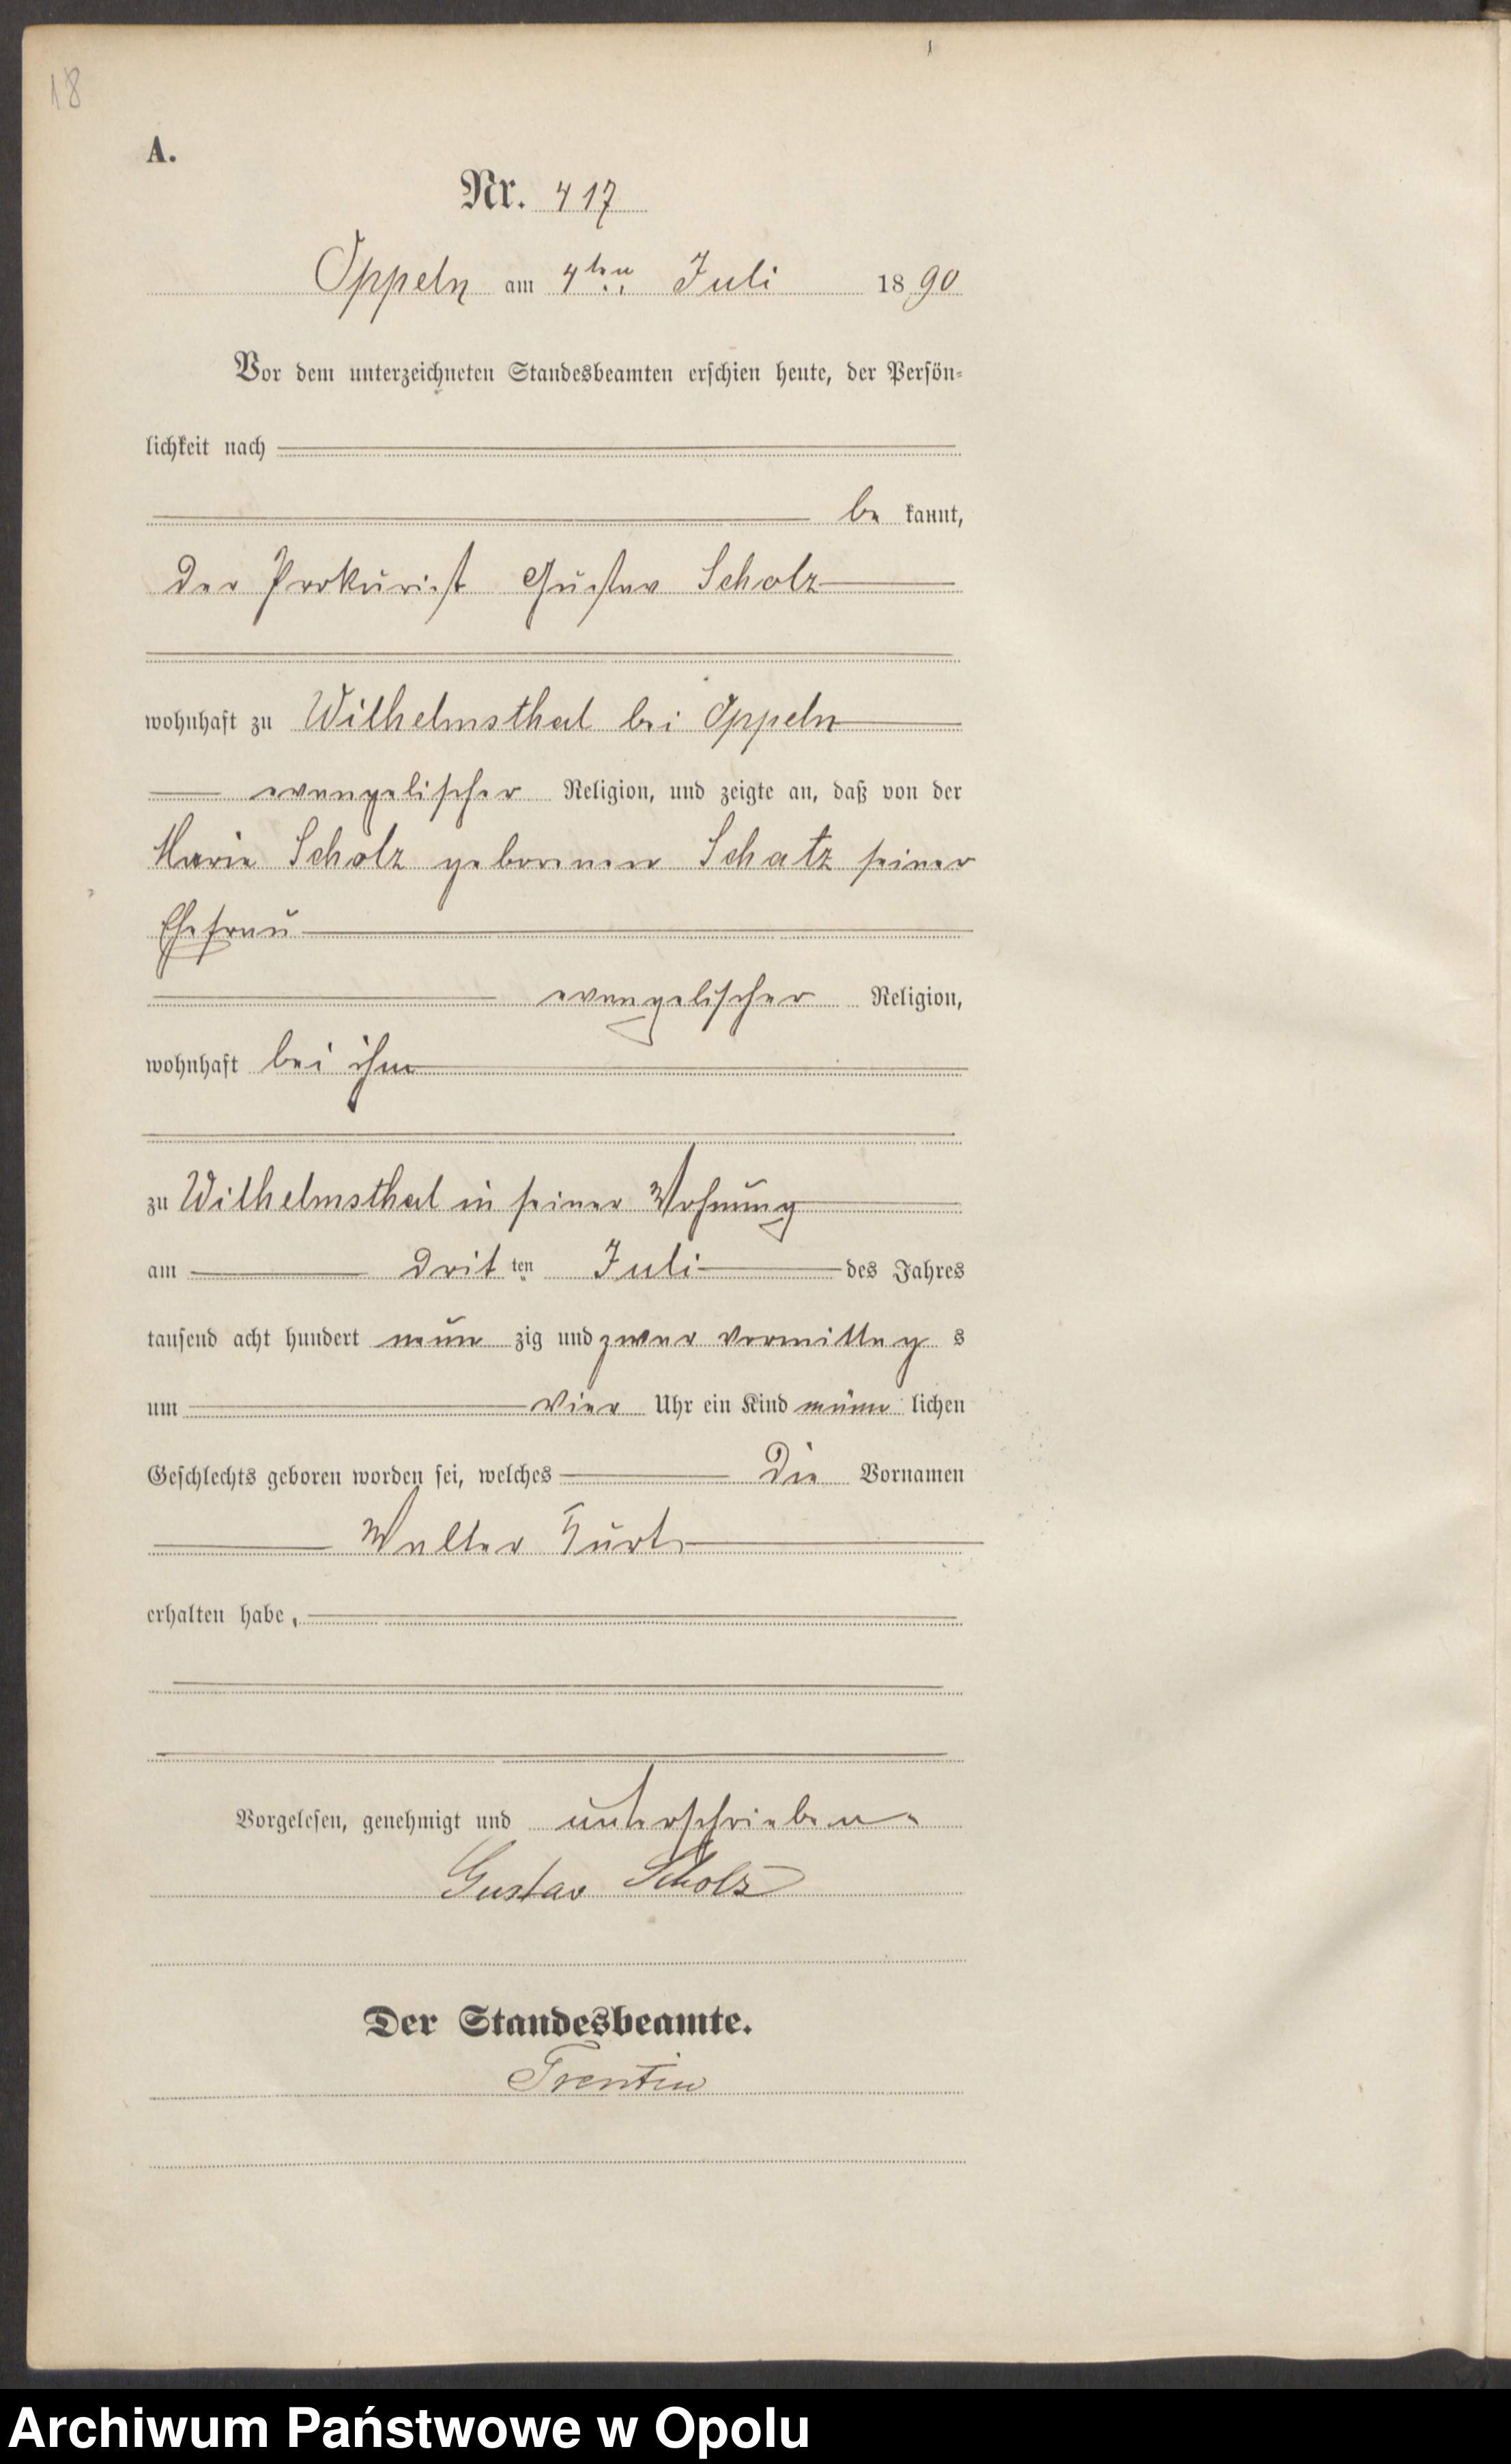 18
A.
Nr. 417
Oppeln am 4ten Juli 1890
Vor dem unterzeichneten Standesbeamten erschien heute, der Persön-
lichkeit nach
be kannt,
der Prokurist Gustav Scholz
wohnhaft zu Wilhelmsthal bei Oppeln
evangelischer Religion, und zeigte an, daß von der
Marie Scholz geborenen Schatz seiner
Ehefrau
evangelischer Religion,
wohnhaft bei ihm
zu Wilhelmsthal in seiner Wohnung
am dritten Juli des Jahres
tausend acht hundert neun zig und zwar Vormittag s
um vier Uhr ein Kind männ lichen
Geschlechts geboren worden sei, welches die Vornamen
Walter Kurt
erhalten habe.
Vorgelesen, genehmigt und unterschrieben.
Gustav Scholz
Der Standesbeamte.
Trentin
Archiwum Państwowe w Opolu